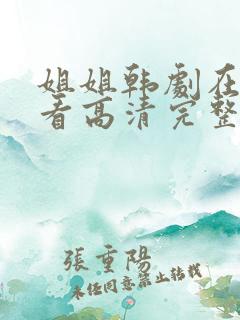 姐姐韩劇在
看高清完整
張重陽
未经同意禁止转载